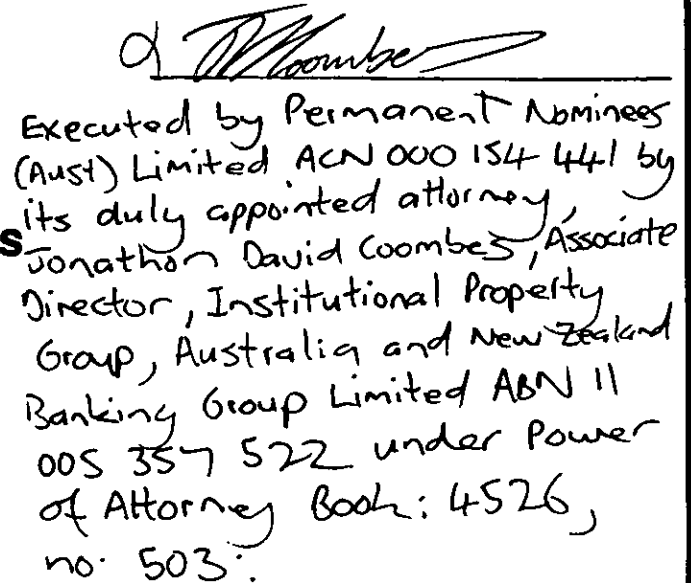 Coombes
Executed by Permanent Nominees
(Aust) Limited ACN 000 154 441 by
its duly appointed attorney,
S Jonathon David Coombes, Associate
Director, Institutional Property
Group, Australia and New Zealand
Banking Group Limited ABN 11
005 357 522 under Power
of Attorney Book: 4526,
no. 503.